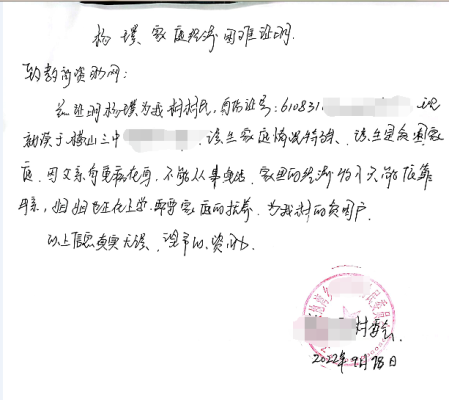 杨璞家庭经济困难证明
致教育资助网:
兹证明杨璞为我村村民,身份证号:610831 现
就读于横山三中 该生家庭情况特殊、该生是贫困家
庭、因父亲有重病在身,不能从事重活,家里的经济收入只能依靠
母亲,姐姐也正在上学,都需家庭的抚养,为我村的贫困户
以上信息真实无误、望予以资助
村委会
2022年9月18日